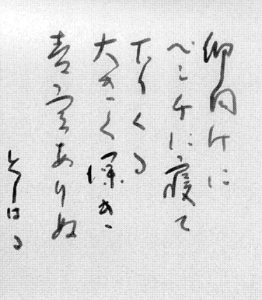 仰向けに
ベンチに寝て
下りくる
大きく深き
青空ありぬ
としはる